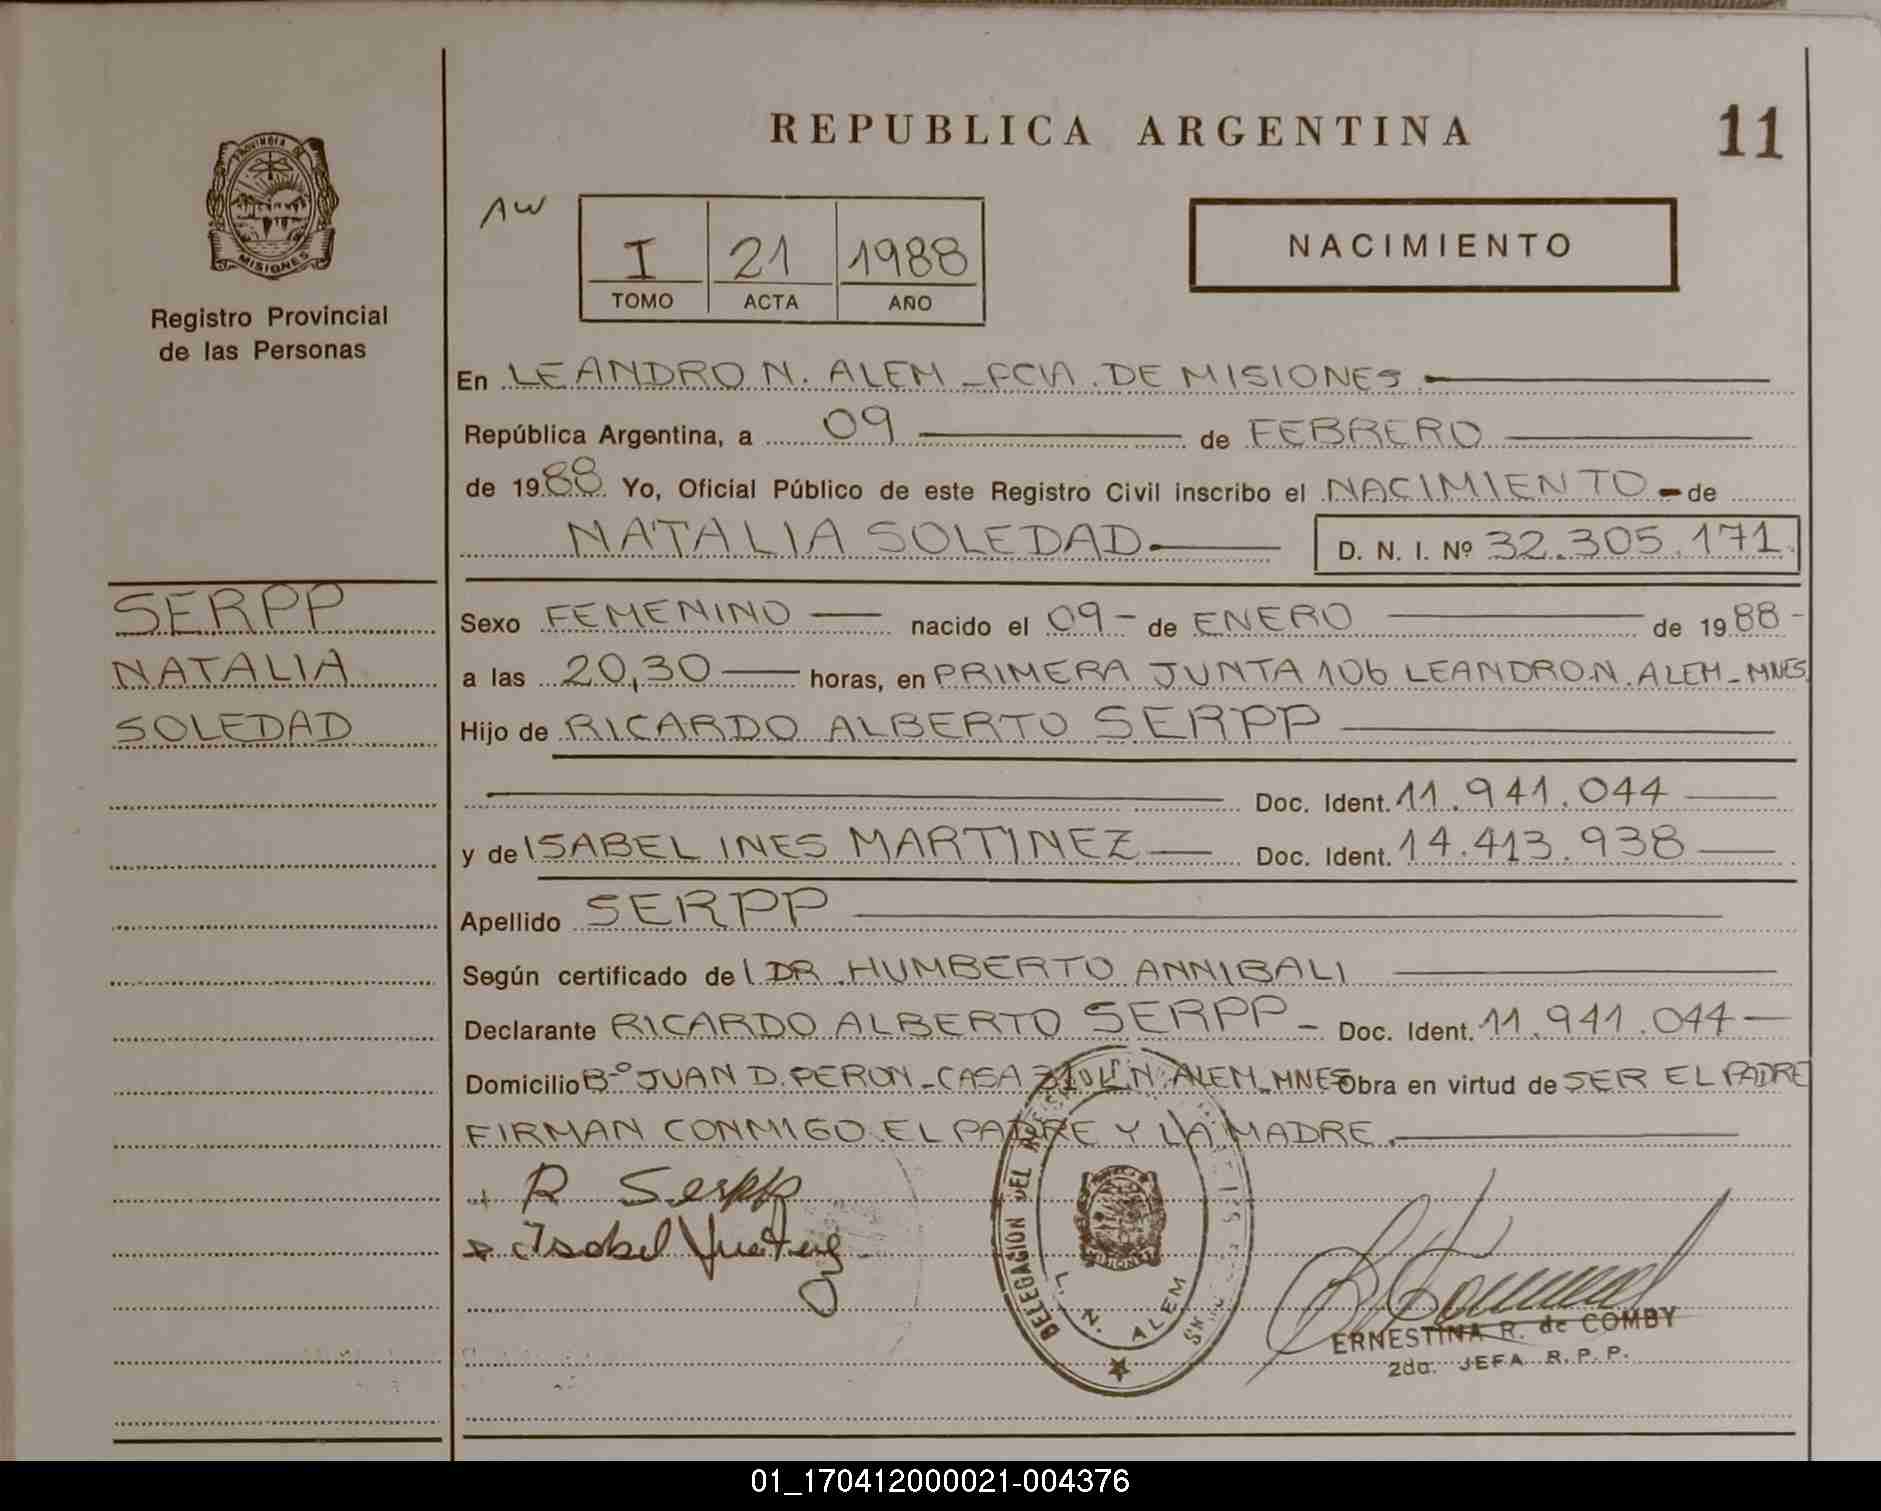 REPUBLICA ARGENTINA
11
PROVINCIA DE
MISIONES
Registro Provincial
de las Personas
AW
I 21 1988
TOMO ACTA AÑO
NACIMIENTO
En LEANDRO N. ALEM - PCIA. DE MISIONES
República Argentina, a 09 de FEBRERO
de 1988 Yo, Oficial Público de este Registro Civil inscribo el NACIMIENTO - de
NATALIA SOLEDAD D. N. I. Nº 32.305.171
SERPP
NATALIA
SOLEDAD
Sexo FEMENINO nacido el 09 - de ENERO de 1988 -
a las 20,30 horas, en PRIMERA JUNTA 106 LEANDRO N. ALEM - MNES
Hijo de RICARDO ALBERTO SERPP
Doc. Ident. 11.941.044
y de ISABEL INES MARTINEZ Doc. Ident. 14.413.938
Apellido SERPP
Según certificado de DR. HUMBERTO ANNIBALI
Declarante RICARDO ALBERTO SERPP - Doc. Ident. 11.941.044
Domicilio Bº JUAN D. PERON - CASA L. N. ALEM - MNES Obra en virtud de SER EL PADRE
FIRMAN CONMIGO EL PADRE Y LA MADRE.
R Serpp
Isabel
DELEGACION DEL
L. N. ALEM
MISIONES
ERNESTINA R. de COMBY
2da. JEFA R. P. P.
01_170412000021-004376